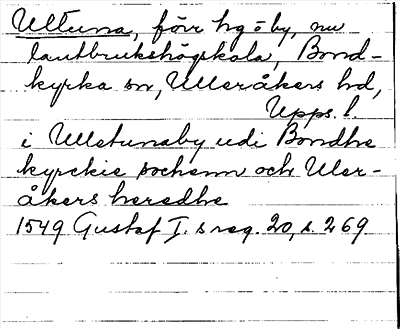 Ultuna, förr hg o by, nu
lantbrukshögskola, Bond-
kyrka sn, Ulleråkers hd,
Upps. l.
i Ulletunaby udi Bondhe
kyrckie sochenn och Uler-
åkers heredhe
1549 Gustaf I.s reg. 20, s. 269